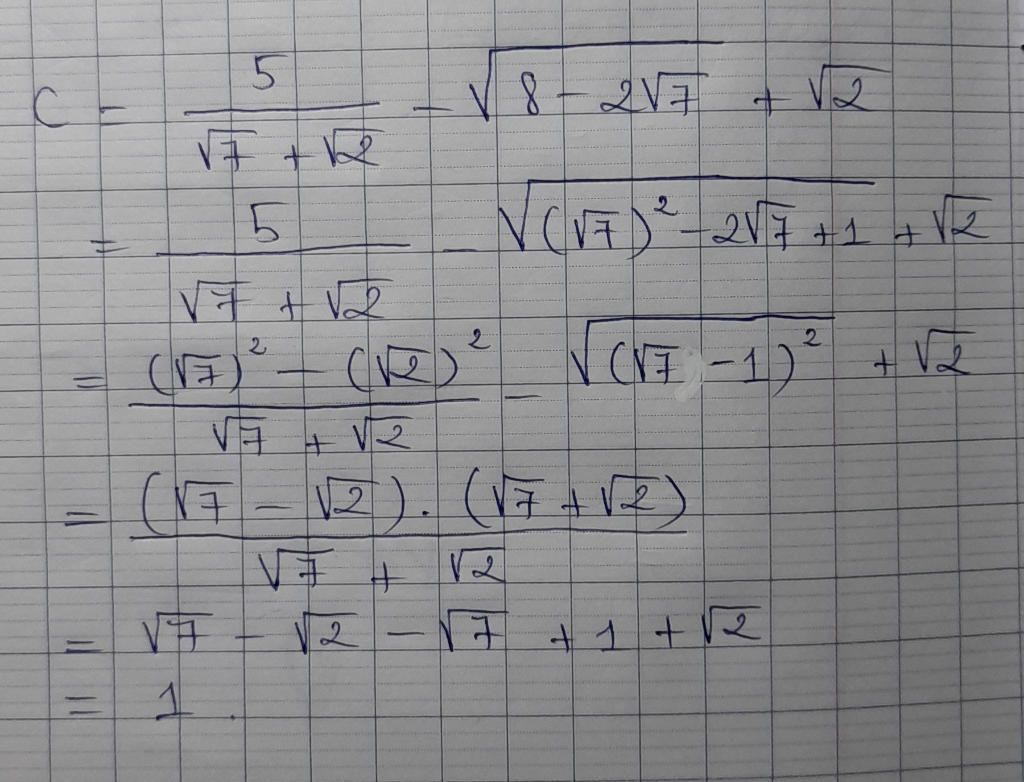 C = \frac{5}{\sqrt{7} + \sqrt{2}} - \sqrt{8 - 2\sqrt{7}} + \sqrt{2}
= \frac{5}{\sqrt{7} + \sqrt{2}} - \sqrt{(\sqrt{7})^2 - 2\sqrt{7} + 1} + \sqrt{2}
= \frac{(\sqrt{7})^2 - (\sqrt{2})^2}{\sqrt{7} + \sqrt{2}} - \sqrt{(\sqrt{7} - 1)^2} + \sqrt{2}
= \frac{(\sqrt{7} - \sqrt{2}) . (\sqrt{7} + \sqrt{2})}{\sqrt{7} + \sqrt{2}}
= \sqrt{7} - \sqrt{2} - \sqrt{7} + 1 + \sqrt{2}
= 1 .